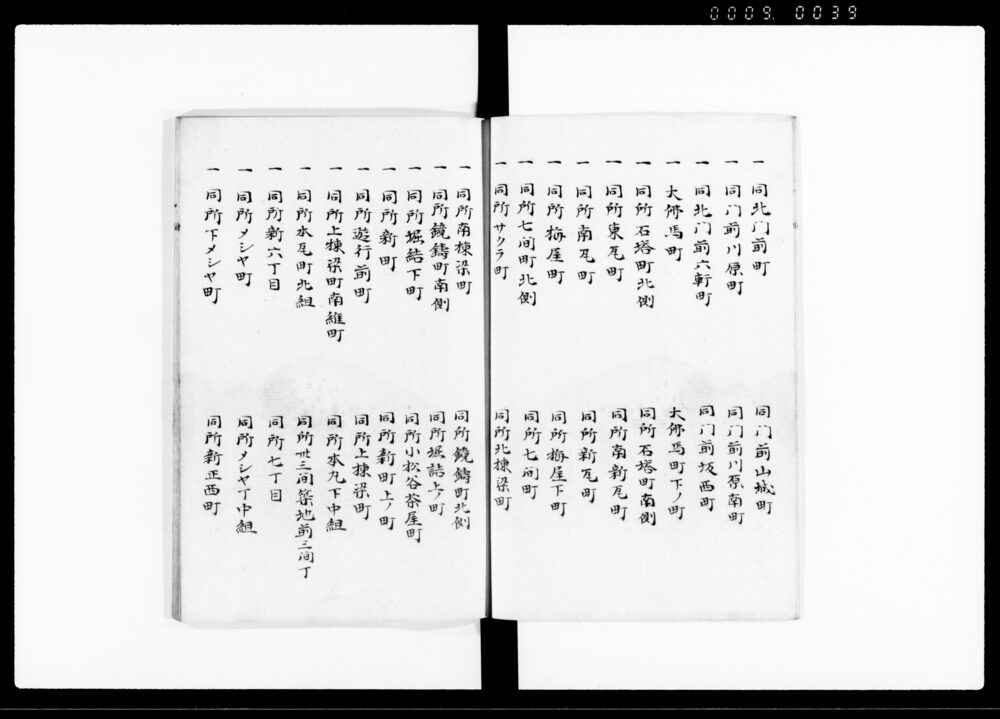 0009. 0039
一 同北门前町 同门前山城町
一 同门前川原町 同门前川原南町
一 同北门前六軒町 同门前坂西町
一 大佛馬町 大佛馬町下ノ町
一 同所石塔町北側 同所石塔町南側
一 同所東瓦町 同所南新瓦町
一 同所南瓦町 同所新瓦町
一 同所梅屋町 同所梅屋下町
一 同所七间町北側 同所七间町
一 同所サクラ町 同所北棟梁町
一 同所南棟梁町 同所鏡鋳町北側
一 同所鏡鋳町南側 同所堀詰上ノ町
一 同所堀結下町 同所小松谷茶屋町
一 同所新町 同所新町上ノ町
一 同所遊行前町 同所上棟梁町
一 同所上棟梁町南組町 同所本瓦下中組
一 同所本瓦町北組 同所卅三间築地前三间丁
一 同所新六丁目 同所七丁目
一 同所メシヤ町 同所メシヤ丁中組
一 同所下メシヤ町 同所新正西町